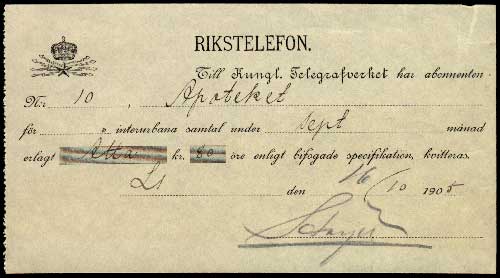 RIKSTELEFON.
Till Kungl. Telegrafverket har abonnenten
N:r 10, Apoteket
för " interurbana samtal under Sept månad
erlagt Åtta kr. 80 öre enligt bifogade specifikation, kvitteras.
den 16/10 1905